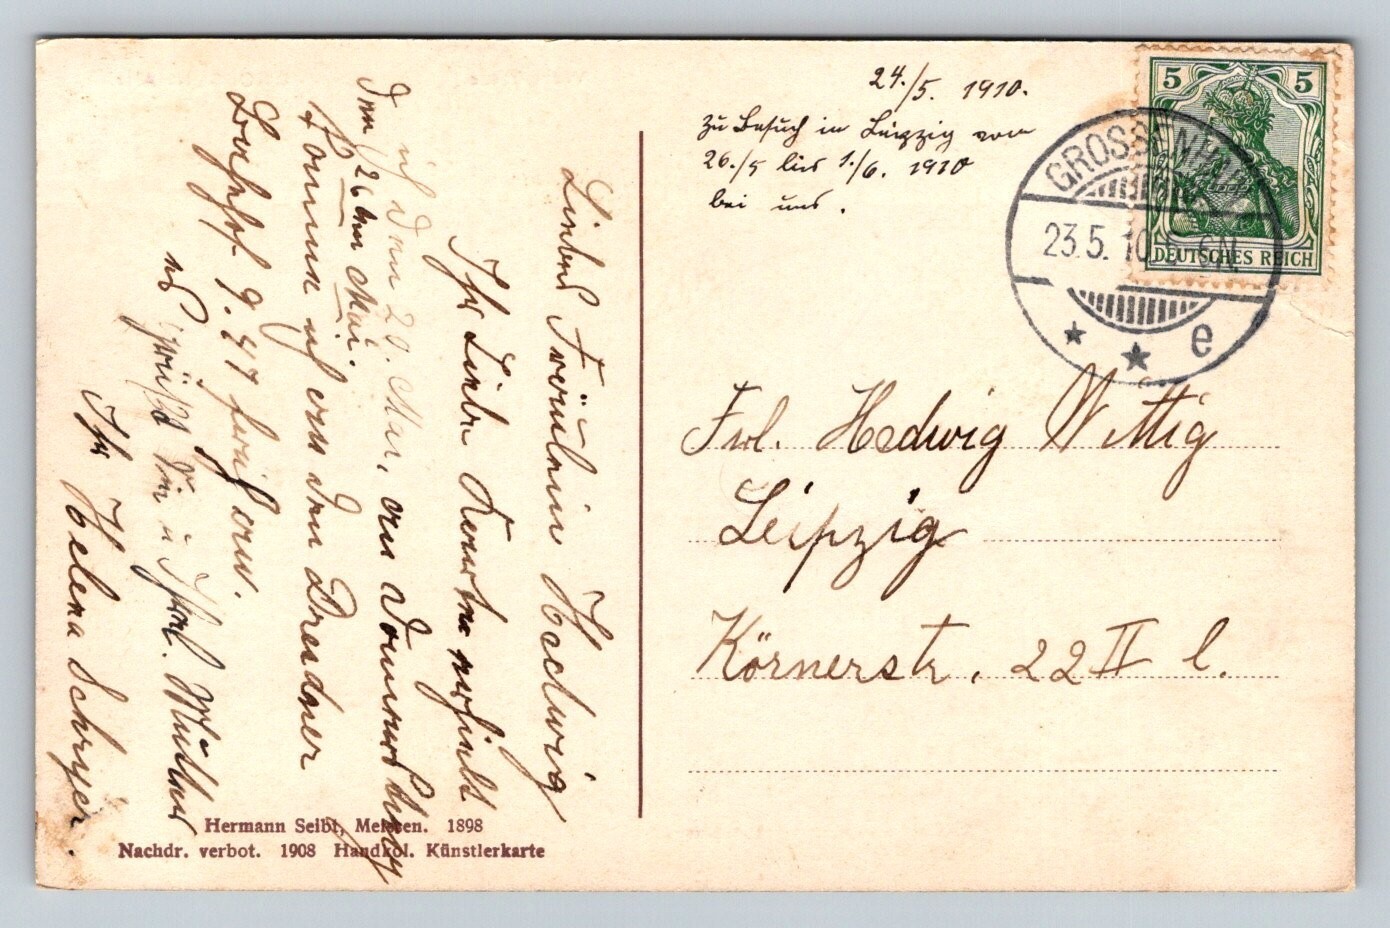 24./5. 1910.
zu Besuch in Leipzig vom
26./5 bis 1./6. 1910
bei uns.
5 5
DEUTSCHES REICH
GROSSENHAIN
23.5.10. 5-6N.
* * e
Frl. Hedwig Wittig
Leipzig
Körnerstr. 22 II l.
Liebes Fräulein Hedwig
Ihr Liebe Karte erhielt
ich den 20. Mai, an Donnerstag
den 26ten Mai.
komme ich an den Dresdner
Bahnhof 9.47 früh an.
es grüßt Sie u. Ihre l. Mutter
Ihr Helena Schryer.
Hermann Seibt, Meissen. 1898
Nachdr. verbot. 1908 Handkol. Künstlerkarte